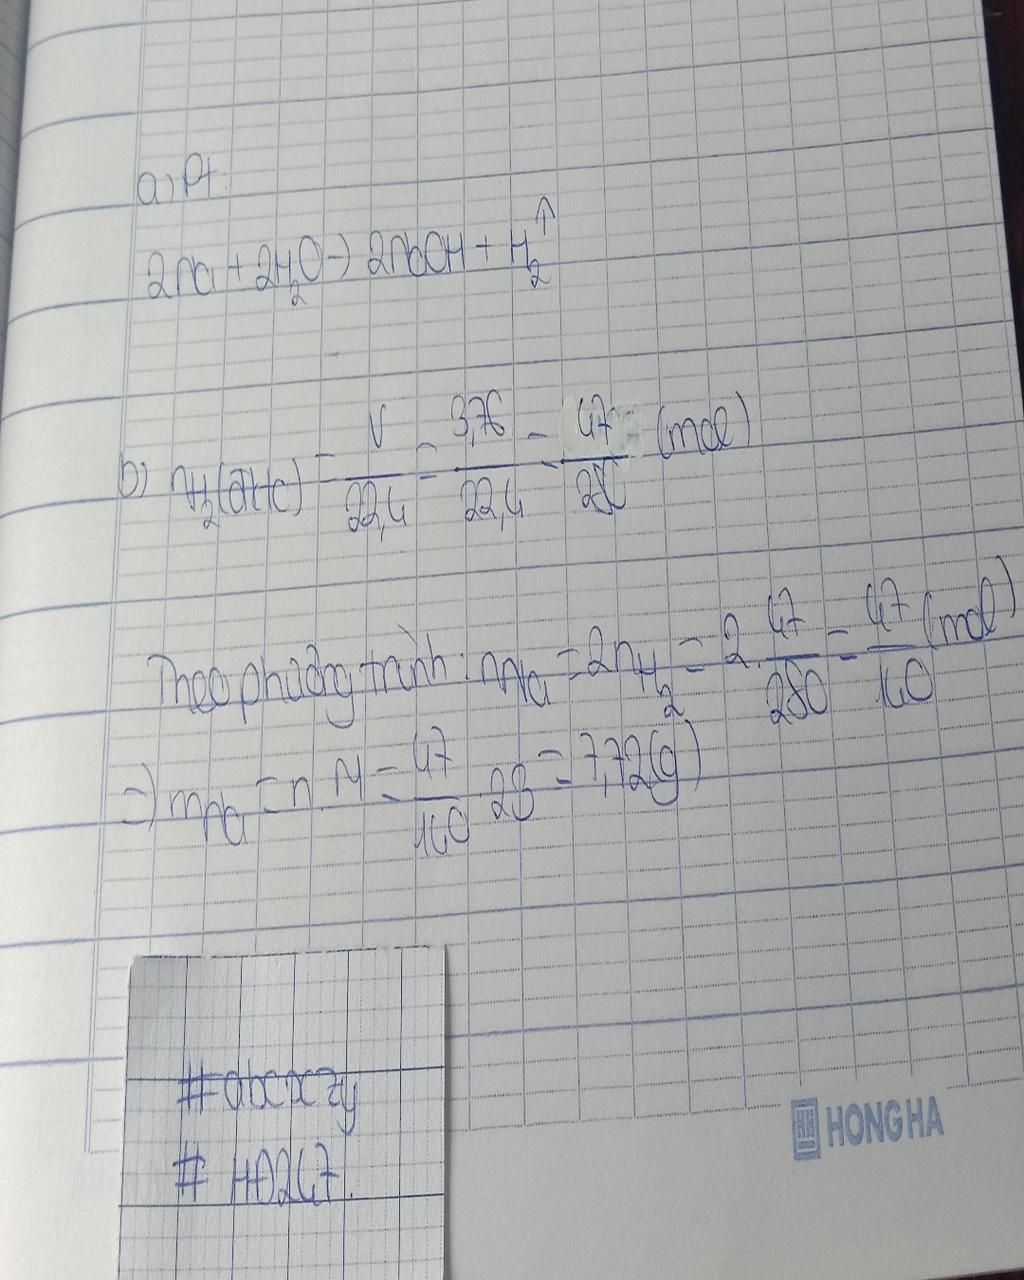 a) Pt:
2Na + 2H₂O → 2NaOH + H₂↑
b) nH₂(đktc) = V/22,4 = 3,76/22,4 = 47/280 (mol)
Theo phương trình: nNa = 2nH₂ = 2.47/280 = 47/140 (mol)
=> mNa = n.M = 47/140.23 = 7,72(g)
#abcxzy
# HD247.
HH HONG HA